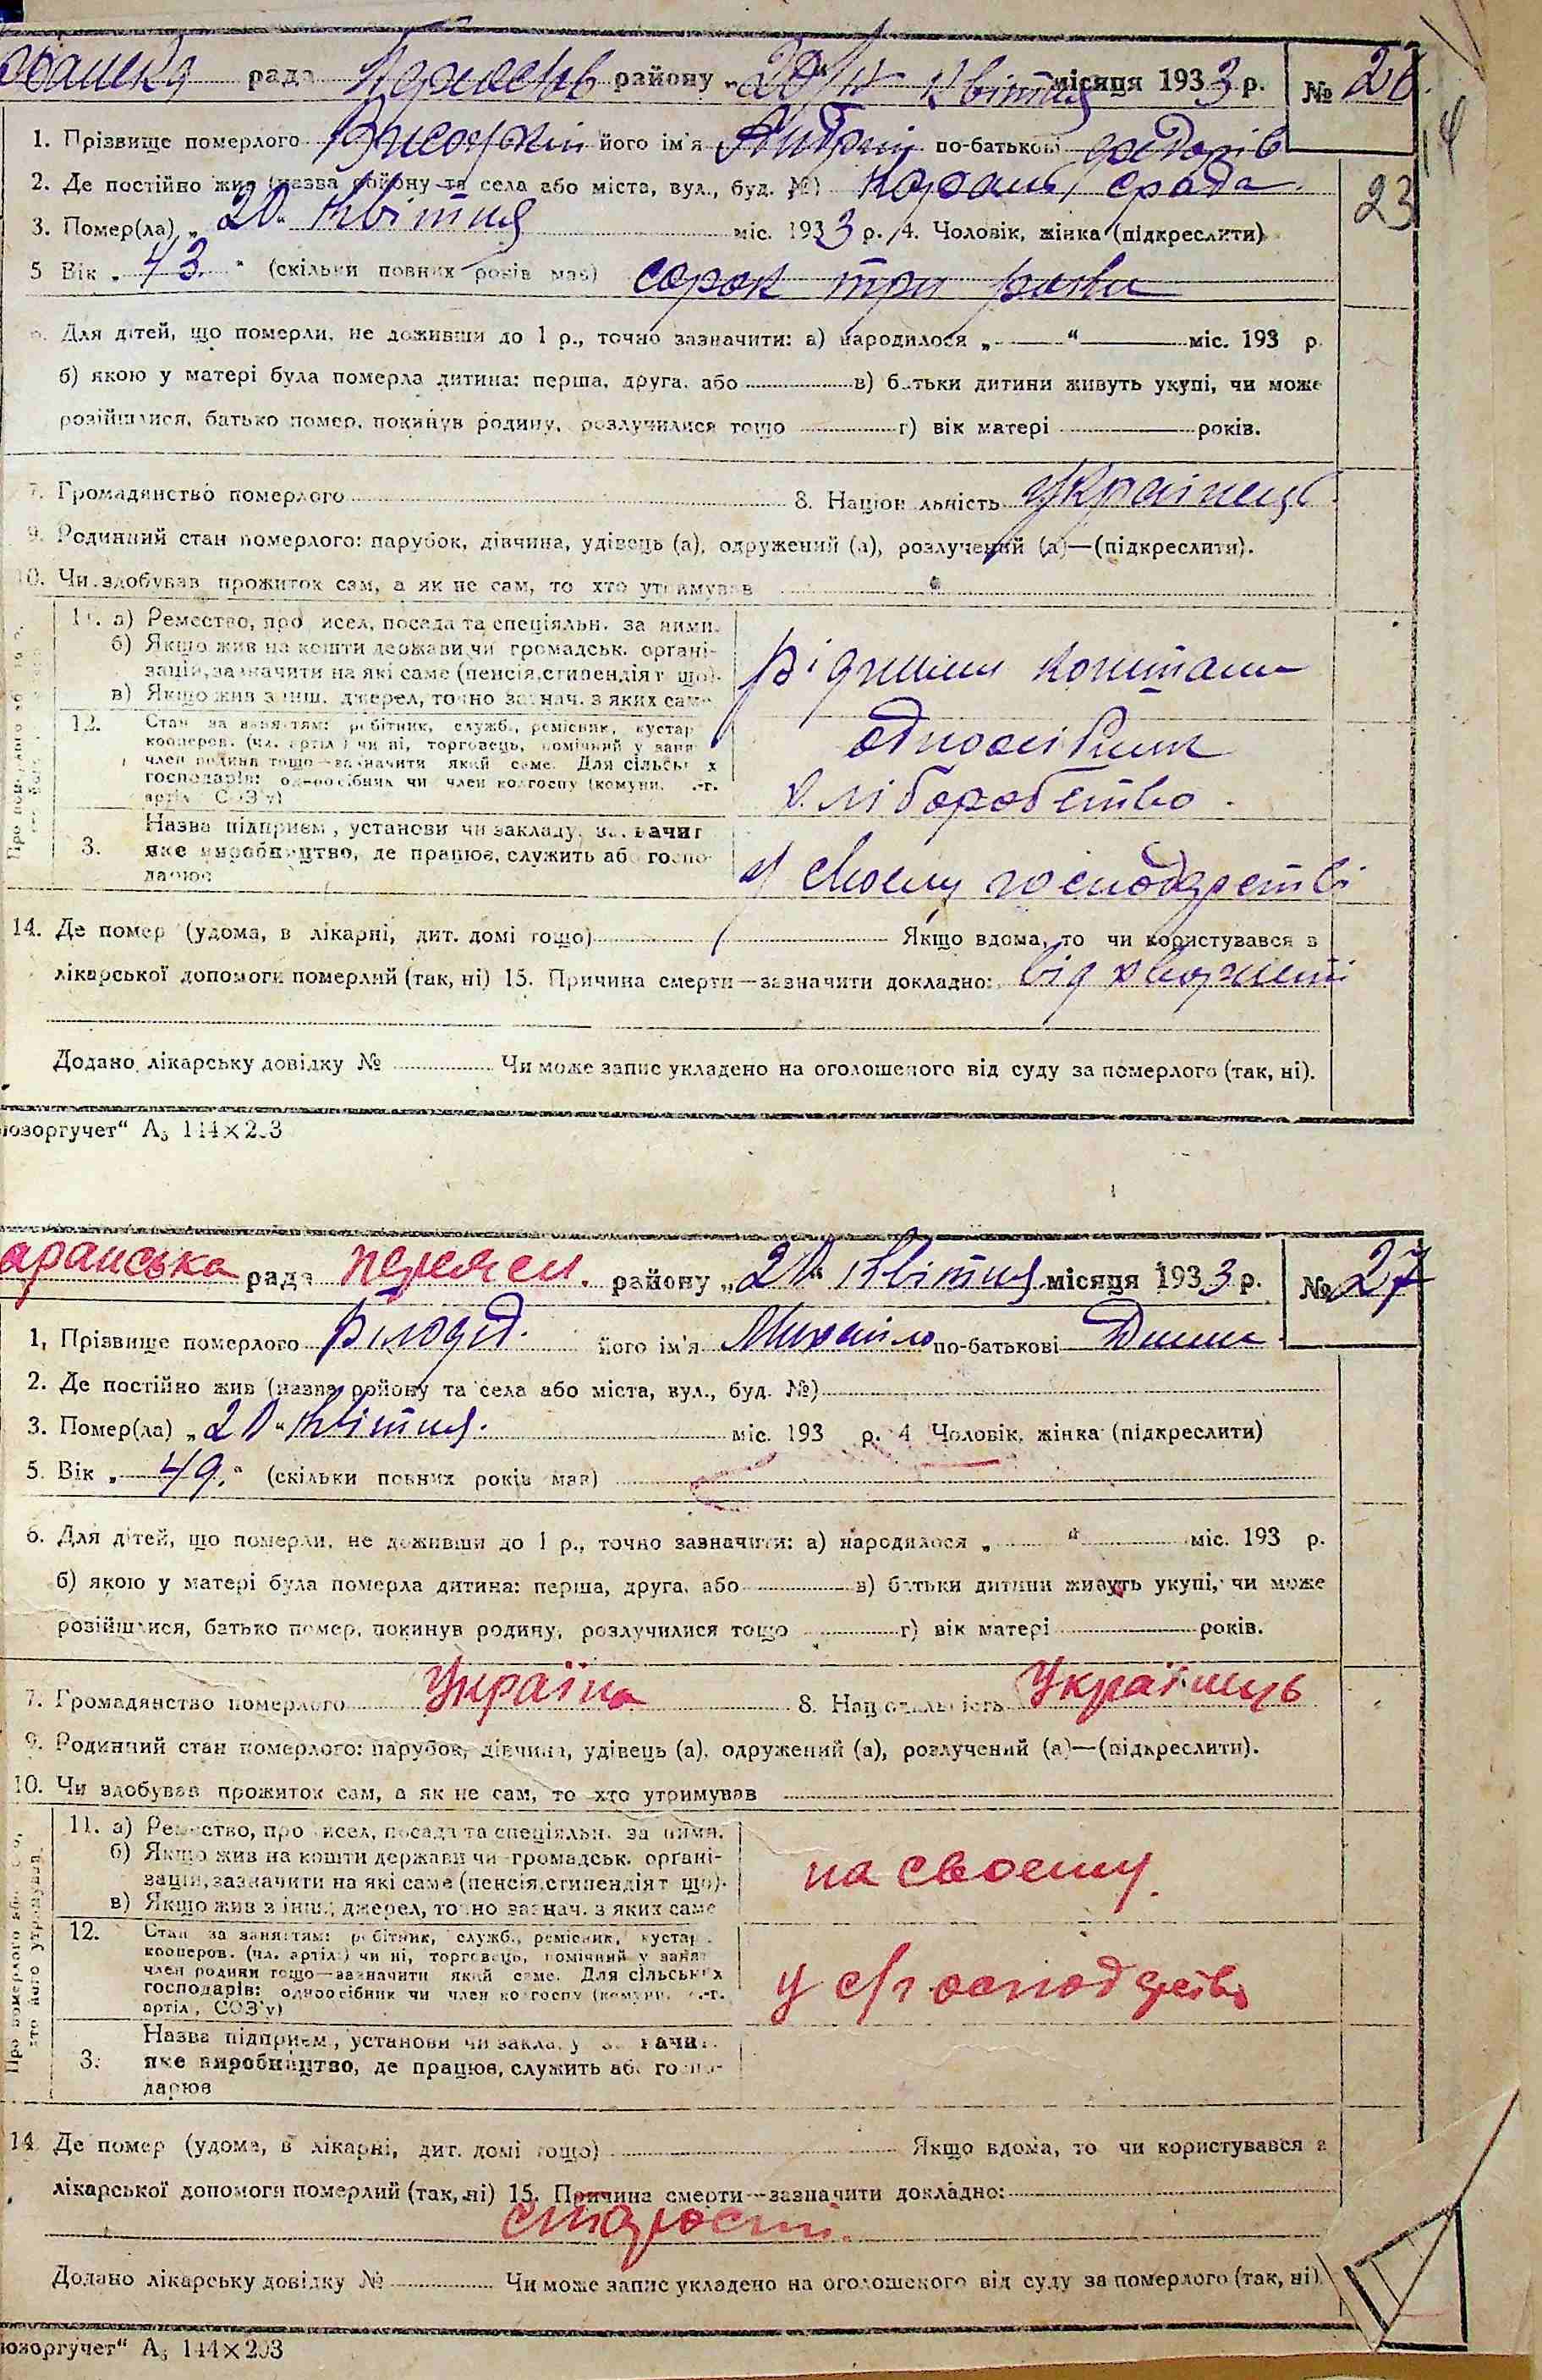 рада району „20“ Квітня місяця 1933 р. № 26
1. Прізвище померлого його ім'я Андрій по-батькові Федорів
14
2. Де постійно жив (назва району та села або міста, вул., буд. №)
23
3. Помер(ла) „20“ Квітня міс. 1933 р. 4. Чоловік, жінка (підкреслити)
5 Вік „43.“ (скільки повних років мав) сорок три роки
6. Для дітей, що померли, не доживши до 1 р., точно зазначити: а) народилося „ “ міс. 193 р.
б) якою у матері була померла дитина: перша, друга, або в) батьки дитини живуть укупі, чи може
розійшлися, батько помер, покинув родину, розлучилися тощо г) вік матері років.
7. Громадянство померлого 8. Національність українець
9. Родинний стан померлого: парубок, дівчина, удівець (а), одружений (а), розлучений (а)—(підкреслити).
10. Чи здобував прожиток сам, а як не сам, то хто утримував
11. а) Ремество, промисел, посада та спеціяльн. за ними.
б) Якщо жив на кошти держави чи громадськ. органі-
зацій, зазначити на які саме (пенсія, стипендія т що).
в) Якщо жив з інш. джерел, точно зазнач. з яких саме
рідними коштами
12. Стан за заняттям: робітник, служб., ремісник, кустар
кооперов. (чл. артіл.) чи ні, торговець, помічний у занят
член родини тощо—зазначити який саме. Для сільських
господарів: одноосібник чи член колгоспу (комуни, с.-г.
артіл, СОЗ'у)
одноосібник
хліборобство
3. Назва підприєм., установи чи закладу, зазначит
яке виробництво, де працює, служить або госпо-
дарює
У своєму господарстві
14. Де помер (удома, в лікарні, дит. домі тощо) Якщо вдома, то чи користувався з
лікарської допомоги померлий (так, ні) 15. Причина смерти—зазначити докладно: від
Додано лікарську довідку № Чи може запис укладено на оголошеного від суду за померлого (так, ні).
юзоргучет“ А₅ 144×203
аранська рада Переясл. району „20“ Квітня місяця 1933 р. № 27
1, Прізвище померлого Білодід його ім'я Михайло по-батькові
2. Де постійно жив (назва району та села або міста, вул., буд. №)
3. Помер(ла) „20“ Квітня. міс. 193 р. 4 Чоловік, жінка (підкреслити)
5. Вік „49.“ (скільки повних років мав)
6. Для дітей, що померли, не доживши до 1 р., точно зазначити: а) народилося „ “ міс. 193 р.
б) якою у матері була померла дитина: перша, друга, або в) батьки дитини живуть укупі, чи може
розійшлися, батько помер, покинув родину, розлучилися тощо г) вік матері років.
7. Громадянство померлого Україна 8. Національність Українець
9. Родинний стан померлого: парубок, дівчина, удівець (а), одружений (а), розлучений (а)—(підкреслити).
10. Чи здобував прожиток сам, а як не сам, то хто утримував
11. а) Ремество, промисел, посада та спеціяльн. за ними.
б) Якщо жив на кошти держави чи громадськ. органі-
зацій, зазначити на які саме (пенсія, стипендія т що).
в) Якщо жив з інш. джерел, точно зазнач. з яких саме
на своєму
12. Стан за заняттям: робітник, служб., ремісник, кустар.
кооперов. (чл. артіл.) чи ні, торговець, помічний у занят
член родини тощо—зазначити який саме. Для сільських
господарів: одноосібник чи член колгоспу (комуни, с.-г.
артіл, СОЗ'у)
у с/господарстві
3. Назва підприєм., установи чи закладу зазначит.
яке виробництво, де працює, служить або госпо-
дарює
14. Де помер (удома, в лікарні, дит. домі тощо) Якщо вдома, то чи користувався з
лікарської допомоги померлий (так, ні) 15. Причина смерти—зазначити докладно:
старости.
Додано лікарську довідку № Чи може запис укладено на оголошеного від суду за померлого (так, ні).
юзоргучет“ А₅ 144×203